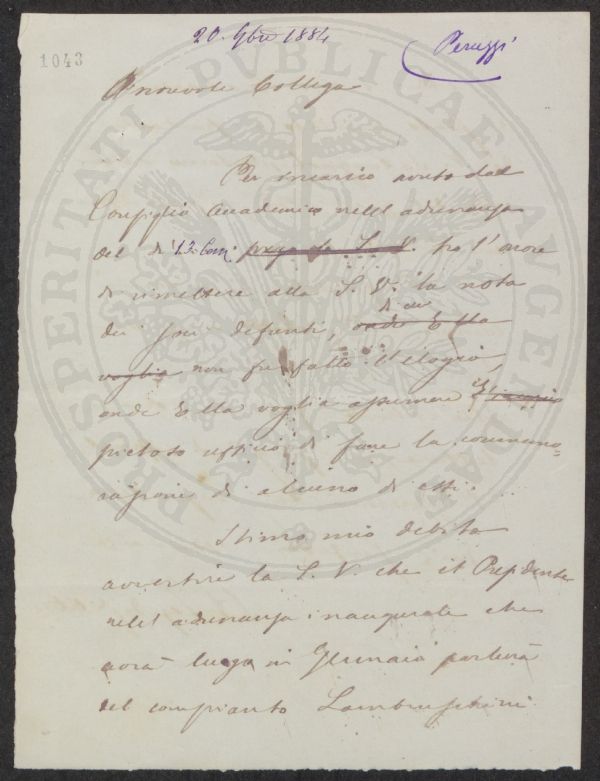 20 9bre 1884
Peruzzi
1043
Onorevole Collega
Per incarico avuto dal
Consiglio Accademico nell'adunanza
del dì 13 Corr. prego la S. V. ho l'onore
di rimettere alla S. V. la nota
dei soci defunti, onde Ella
di cui
voglia non fu fatto l'elogio,
onde Ella voglia assumere il
pietoso ufficio di fare la commemo=
razione di alcuno di essi.
Stimo mio debito
avvertire la S. V. che il Presidente
nell'adunanza inaugurale che
avrà luogo in Gennaio parlerà
del compianto Lambruschini
PROSPERITATI PVBLICAE AVGENDAE